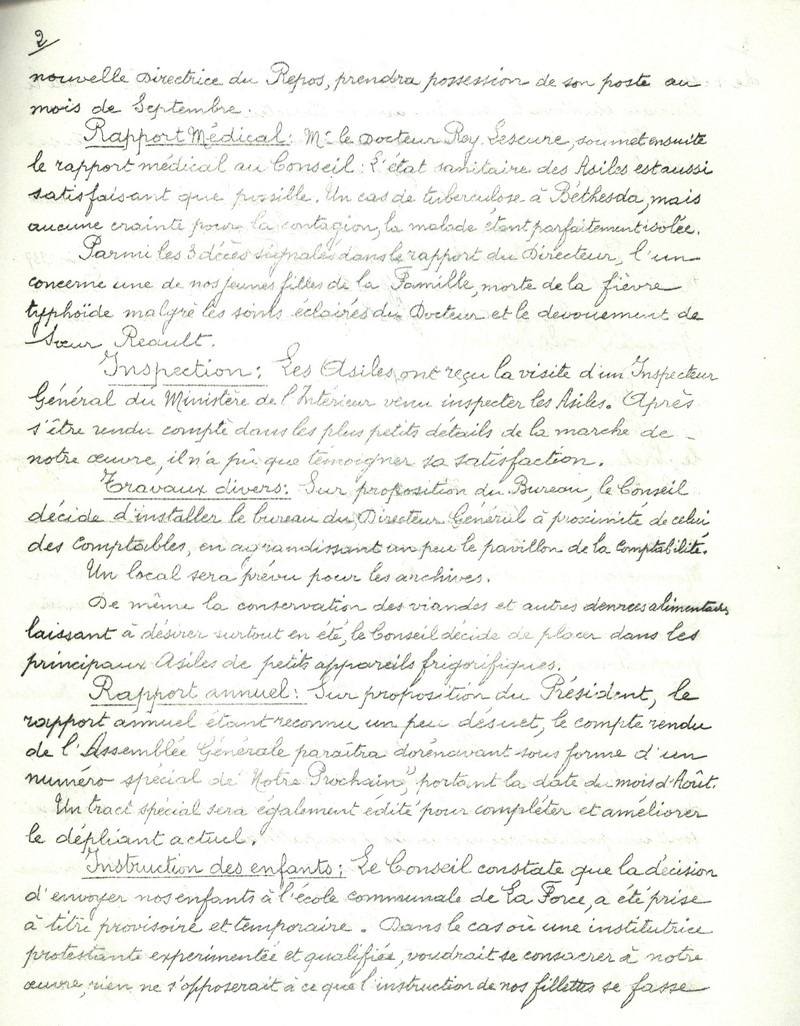 2/
nouvelle Directrice du Repos, prendra possession de son poste au
mois de Septembre.
Rapport Médical: Mr le Docteur Rey Lescure, soumet ensuite
le rapport médical au Conseil: L'état sanitaire des Asiles est aussi
satisfaisant que possible. Un cas de tuberculose à Béthesda, mais
aucune crainte pour la contagion, la malade étant parfaitement isolée.
Parmi les 3 décès signalés dans le rapport du Directeur, l'un
concerne une de nos jeunes filles de la Famille, morte de la fièvre
typhoïde malgré les soins éclairés du Docteur et le dévouement de
Sœur Reault.
Inspection: Les Asiles ont reçu la visite d'un Inspecteur
Général du Ministère de l'Intérieur venu inspecter les Asiles. Après
s'être rendu compte dans les plus petits détails de la marche de
notre œuvre, il n'a pû que témoigner sa satisfaction.
Travaux divers: Sur proposition du Bureau, le Conseil
décide d'installer le bureau du Directeur Général à proximité de celui
des Comptables, en agrandissant un peu le pavillon de la Comptabilité.
Un local sera prévu pour les archives.
De même la conservation des viandes et autres denrées alimentaires,
laissant à désirer surtout en été, le Conseil décide de placer dans les
principaux Asiles de petits appareils frigorifiques.
Rapport annuel: Sur proposition du Président, le
rapport annuel étant reconnu un peu désuet, le compte rendu
de l'Assemblée Générale paraîtra dorénavant sous forme d'un
numéro spécial de "Notre Prochain", portant la date du mois d'Août.
Un tract spécial sera également édité pour compléter et améliorer
le dépliant actuel.
Instruction des enfants: Le Conseil constate que la décision
d'envoyer nos enfants à l'école communale de La Force, a été prise
à titre provisoire et temporaire. Dans le cas où une institutrice
protestante expérimentée et qualifiée, voudrait se consacrer à notre
œuvre, rien ne s'opposerait à ce que l'instruction de nos fillettes se fasse